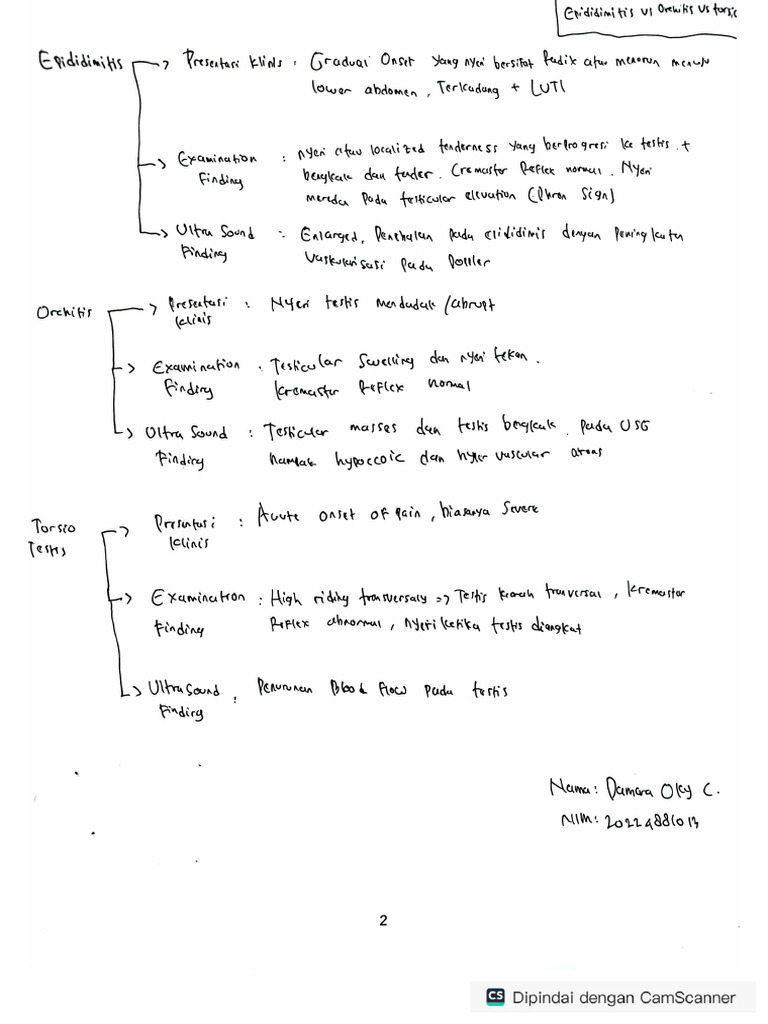 Epididimitis vs Orchitis vs torsio
Epididimitis → Presentasi Klinis : Gradual Onset yang nyeri bersifat Radix atau menurun menuju
lower abdomen, Terkadang + LUTI
→ Examination Finding : nyeri atau localized tenderness yang berprogresi ke testis +
bengkak dan tender. Cremaster Reflex normal. Nyeri
mereda pada testicular elevation (Phren Sign)
→ Ultra Sound Finding : Enlarged, Penebalan pada epididimis dengan peningkatan
Vaskularisasi pada Doppler
Orchitis → Presentasi klinis : Nyeri testis mendadak /abrupt
→ Examination Finding : Testicular Swelling dan nyeri tekan.
kremaster Reflex normal
→ Ultra Sound Finding : Testicular masses dan testis bengkak. Pada USG
nampak hypoecoic dan hyper vascular areas
Torsio Testis → Presentasi klinis : Acute onset of pain, biasanya Severe
→ Examination Finding : High riding transversaly => Testis kearah tranversal, kremaster
Reflex abnormal, nyeri ketika testis diangkat
→ Ultra Sound Finding : Penurunan Blood flow pada testis
Nama: Damara Oky C.
NIM:
2
CS Dipindai dengan CamScanner